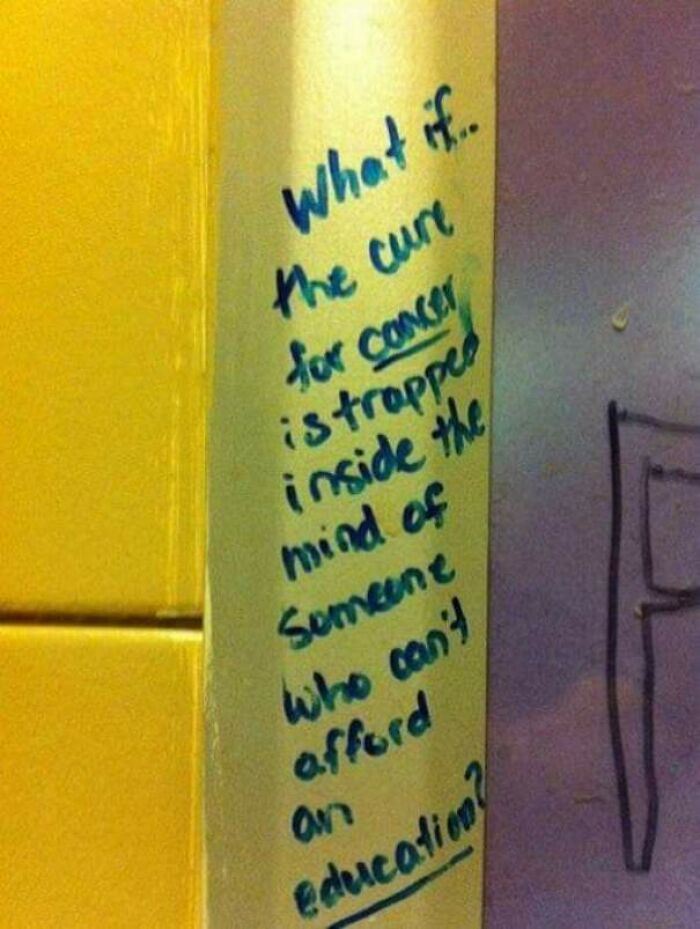 What if..
the cure
for cancer
is trapped
inside the
mind of
someone
who can't
afford
an
education?
P